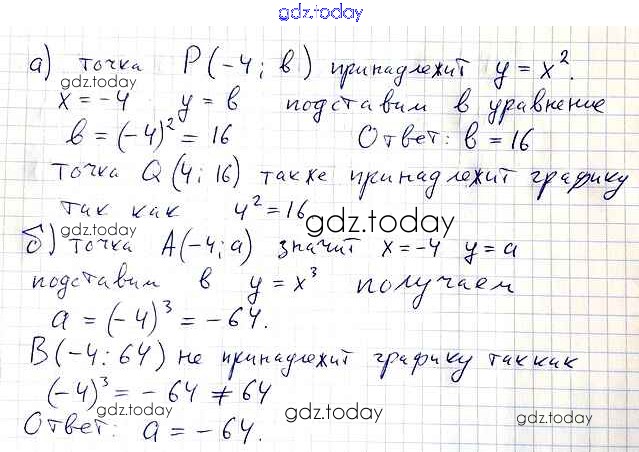 gdz.today
а) точка P(-4; b) принадлежит y = x².
gdz.today
x = -4 y = b подставим в уравнение
b = (-4)² = 16 Ответ: b = 16
точка Q(4; 16) также принадлежит графику
так как 4² = 16
gdz.today
gdz.today
б) точка A(-4; a) значит x = -4 y = a
подставим в y = x³ получаем
a = (-4)³ = -64.
B(-4: 64) не принадлежит графику так как
(-4)³ = -64 ≠ 64
gdz.today gdz.today gdz.today
Ответ: a = -64.